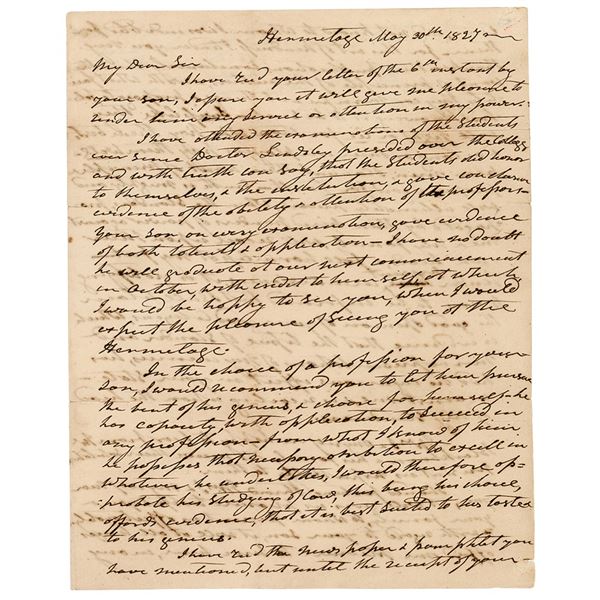 Hermitage May 30th 1827
My Dear Sir
I have recd your letter of the 6th instant by
your son, I assure you it will give me pleasure to
render him any service or attention in my power.
I have attended the examinations of the Students
ever since Doctor Lindsley presided over the College
and with truth can say, that the Students did honor
to themselves, & the institution, & gave conclusive
evidence of the ability & attention of the professors
Your son on every examination, gave evidence
of both talents & application - I have no doubt
he will graduate at our next commencement
in October, with credit to himself, at which
I would be happy to see you, when I would
expect the pleasure of seeing you at the
Hermitage
In the choice of a profession for your
son, I would recommend you to let him pursue
the bent of his genius, & choose for himself - he
has capacity, with application, to succeed in
any profession - from what I know of him
he possesses that necessary ambition to excell in
whatever he undertakes, I would therefore ap-
probate his studying of law, this being his choice,
affords evidence, that it is best suited to his taste &
to his genius.
I have recd the news paper & pamphlet you
have mentioned, but until the receipt of your